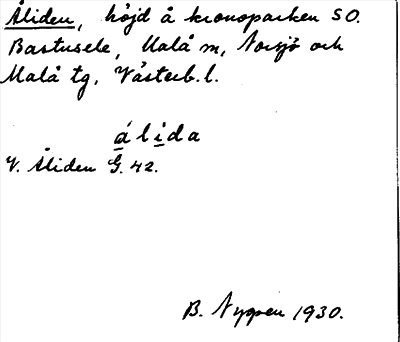 Åliden, höjd å kronoparken SO.
Bastusele, Malå m, Norsjö och
Malå tg. Västerb. l.
álida
V. Åliden G. 42.
B. Nygren 1930.